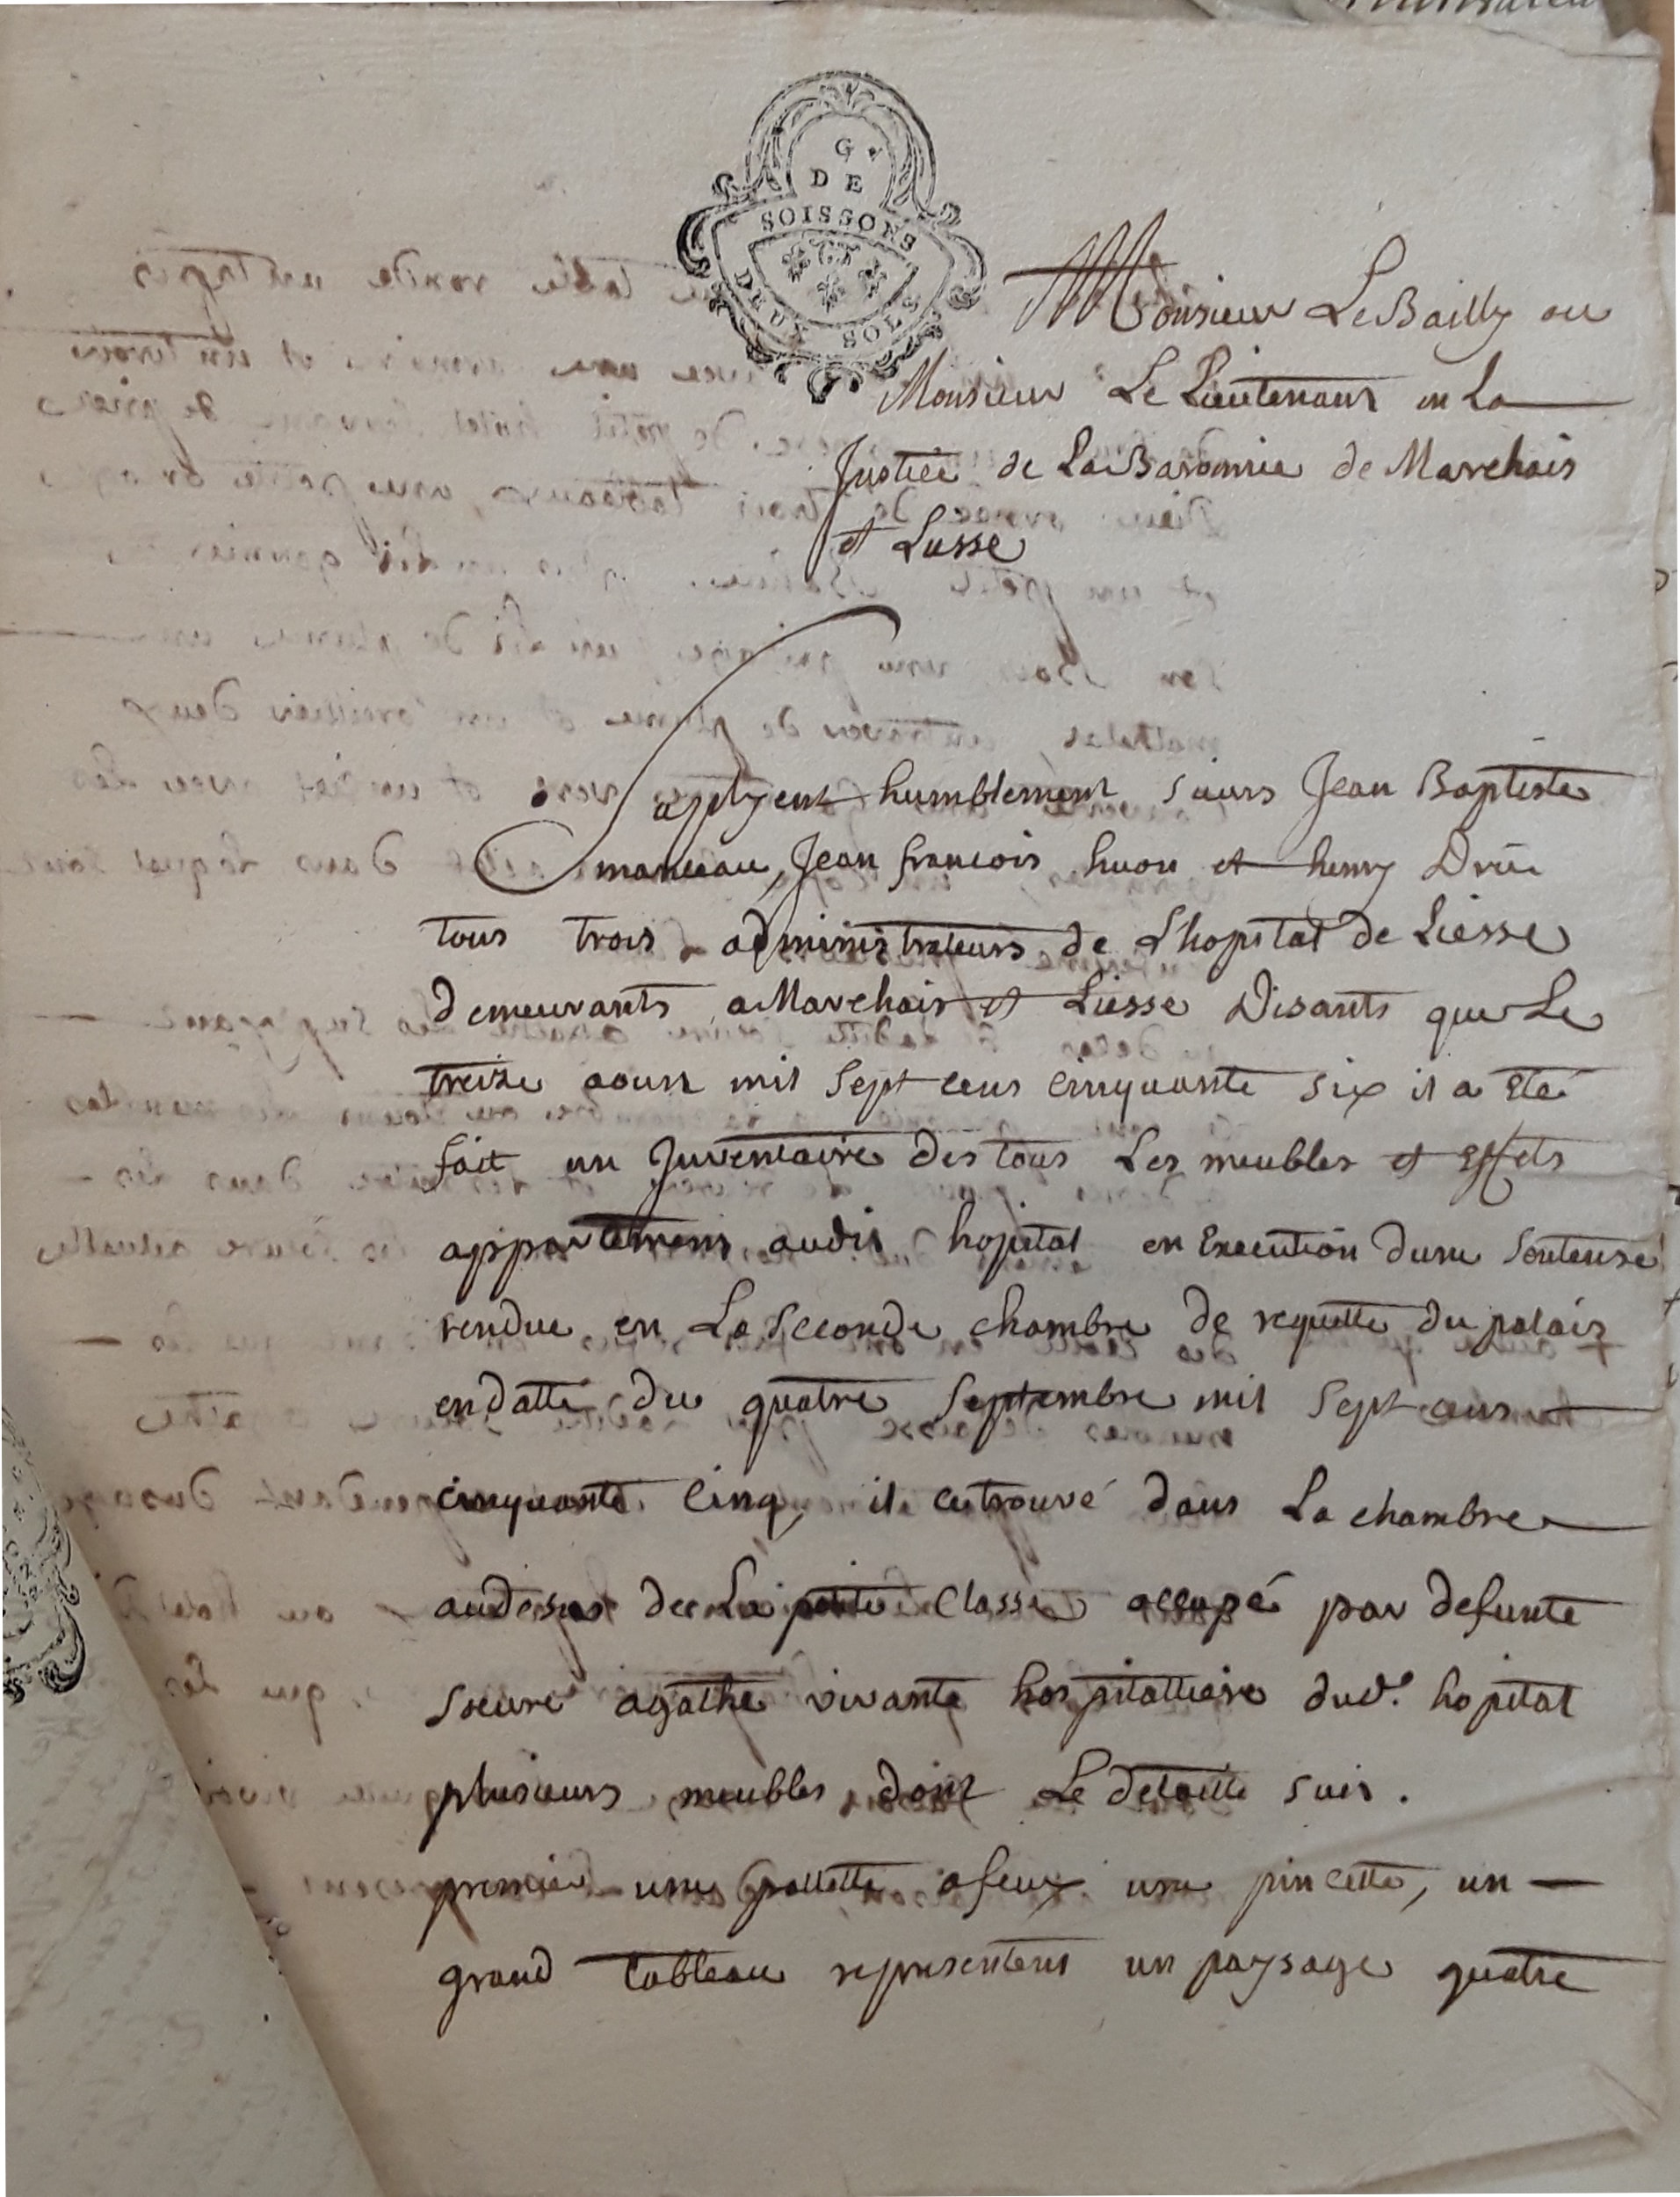 G.
DE
SOISSONS
DEUX SOLS
Monsieur Le Bailly ou
Monsieur Le Lieutenant en La
Justice de La Baronnie de Marchais
et Liesse
Supplyent humblement sieurs Jean Baptiste
manceau, Jean francois huon et henry Drüe
tous trois administrateurs de L'hopital de Liesse
demeurants a Marchais et Liesse Disants que Le
treize aoust mil Sept cens cinquante six il a eté
fait un Inventaire des tous Les meubles et effets
appartenans audit hopital en Execution dune Sentense
rendue en La Seconde chambre de requette du palais
en datte du quatre Septembre mil Sept cens
cinquante cinq, il cetrouvé dans La chambre
audessus de La petite Classe occupé par defunte
Soeure agathe vivante hospitalliere dud. hopital
plusieurs meubles dont Le detaille suit.
premier une pallette a feux une pincette, un
grand tableau representent un paysage quatre